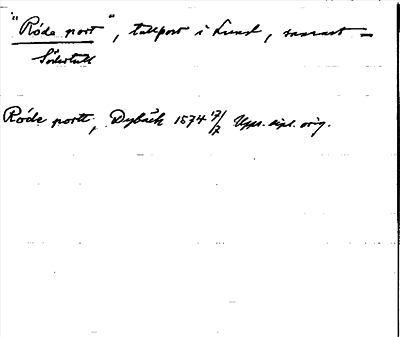 "Röda port", tullport i Lund, snarast =
Södertull
Röde portt, Dybäck 1574 17/7 Upps. dipl. orig.